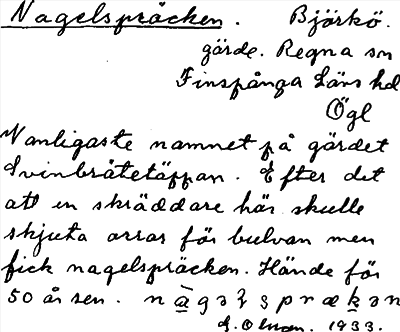 Nagelspräcken. Björkö.
gärde. Regna sn
Finspånga Läns hd
Ögl
Vanligaste namnet på gärdet
Svinbråtetäppan. Efter det
att en skräddare här skulle
skjuta orrar för bulvan men
fick nagelspräcken. Hände för
50 år sen.
1933.